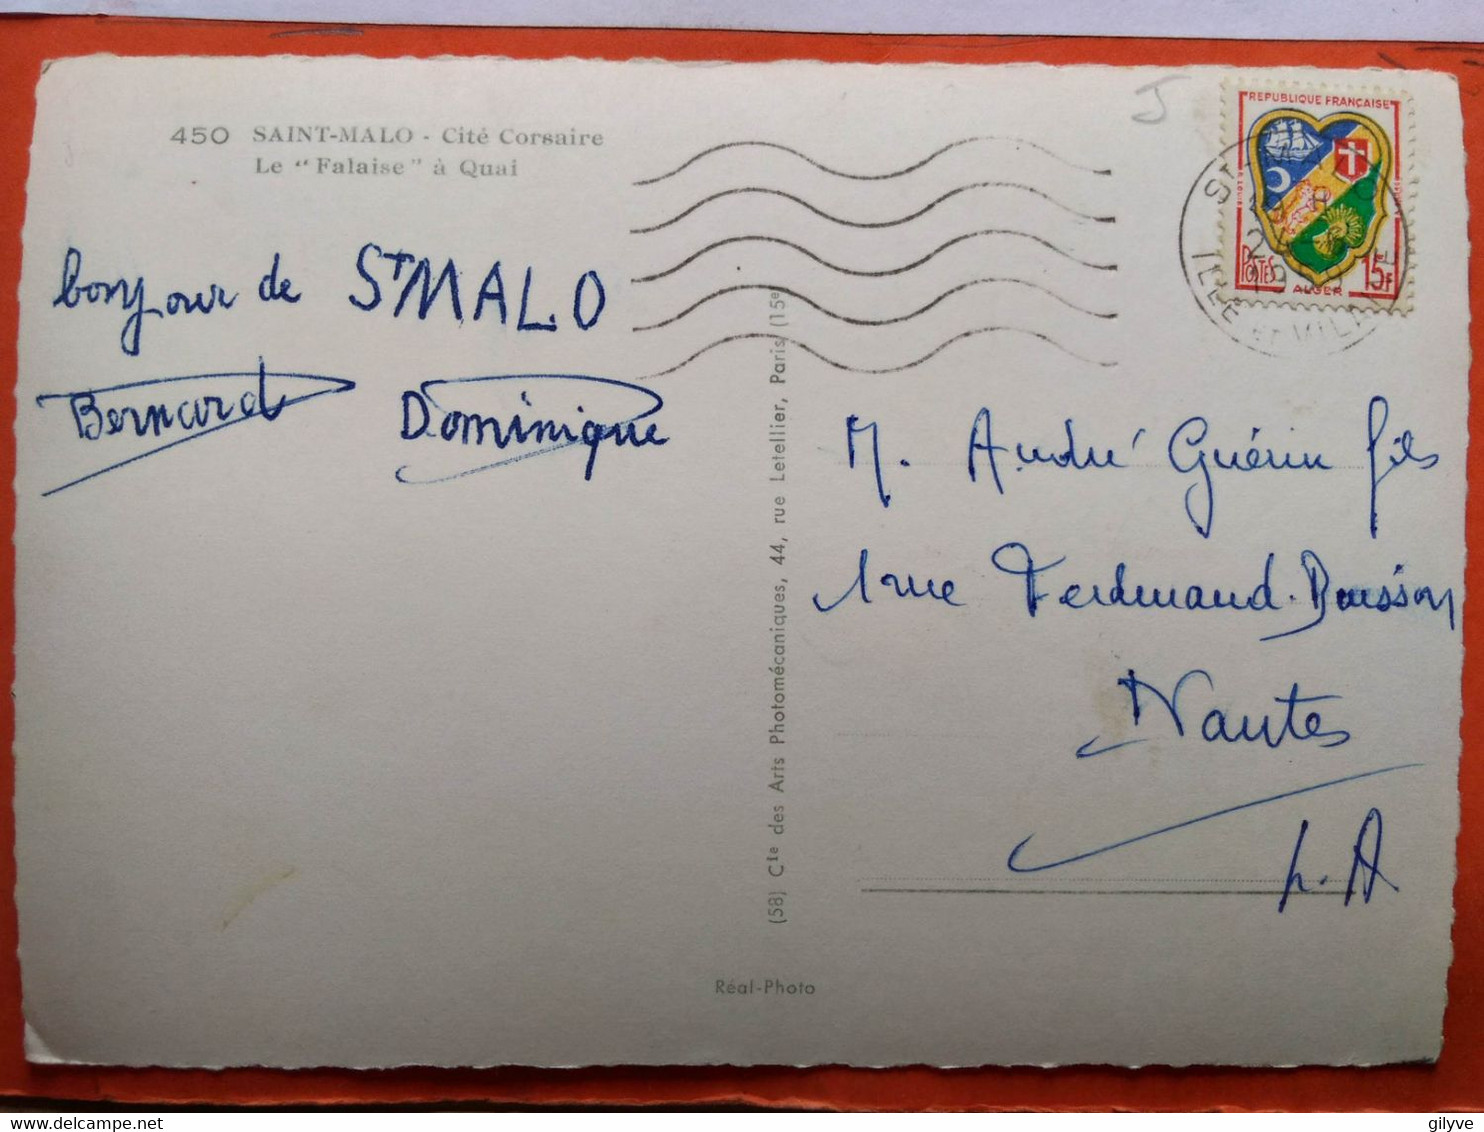 450 SAINT-MALO - Cité Corsaire
Le "Falaise" à Quai
bonjour de ST MALO
Bernard Dominique
REPUBLIQUE FRANÇAISE
POSTES
ALGER
15F
ST-MALO
ILLE ET VILAINE
M. André Guérin fils
1 rue Ferdinand. Buisson
Nantes
L. A
(58) Cie des Arts Photomécaniques, 44, rue Letellier, Paris (15e)
Réal-Photo
J
gilyve